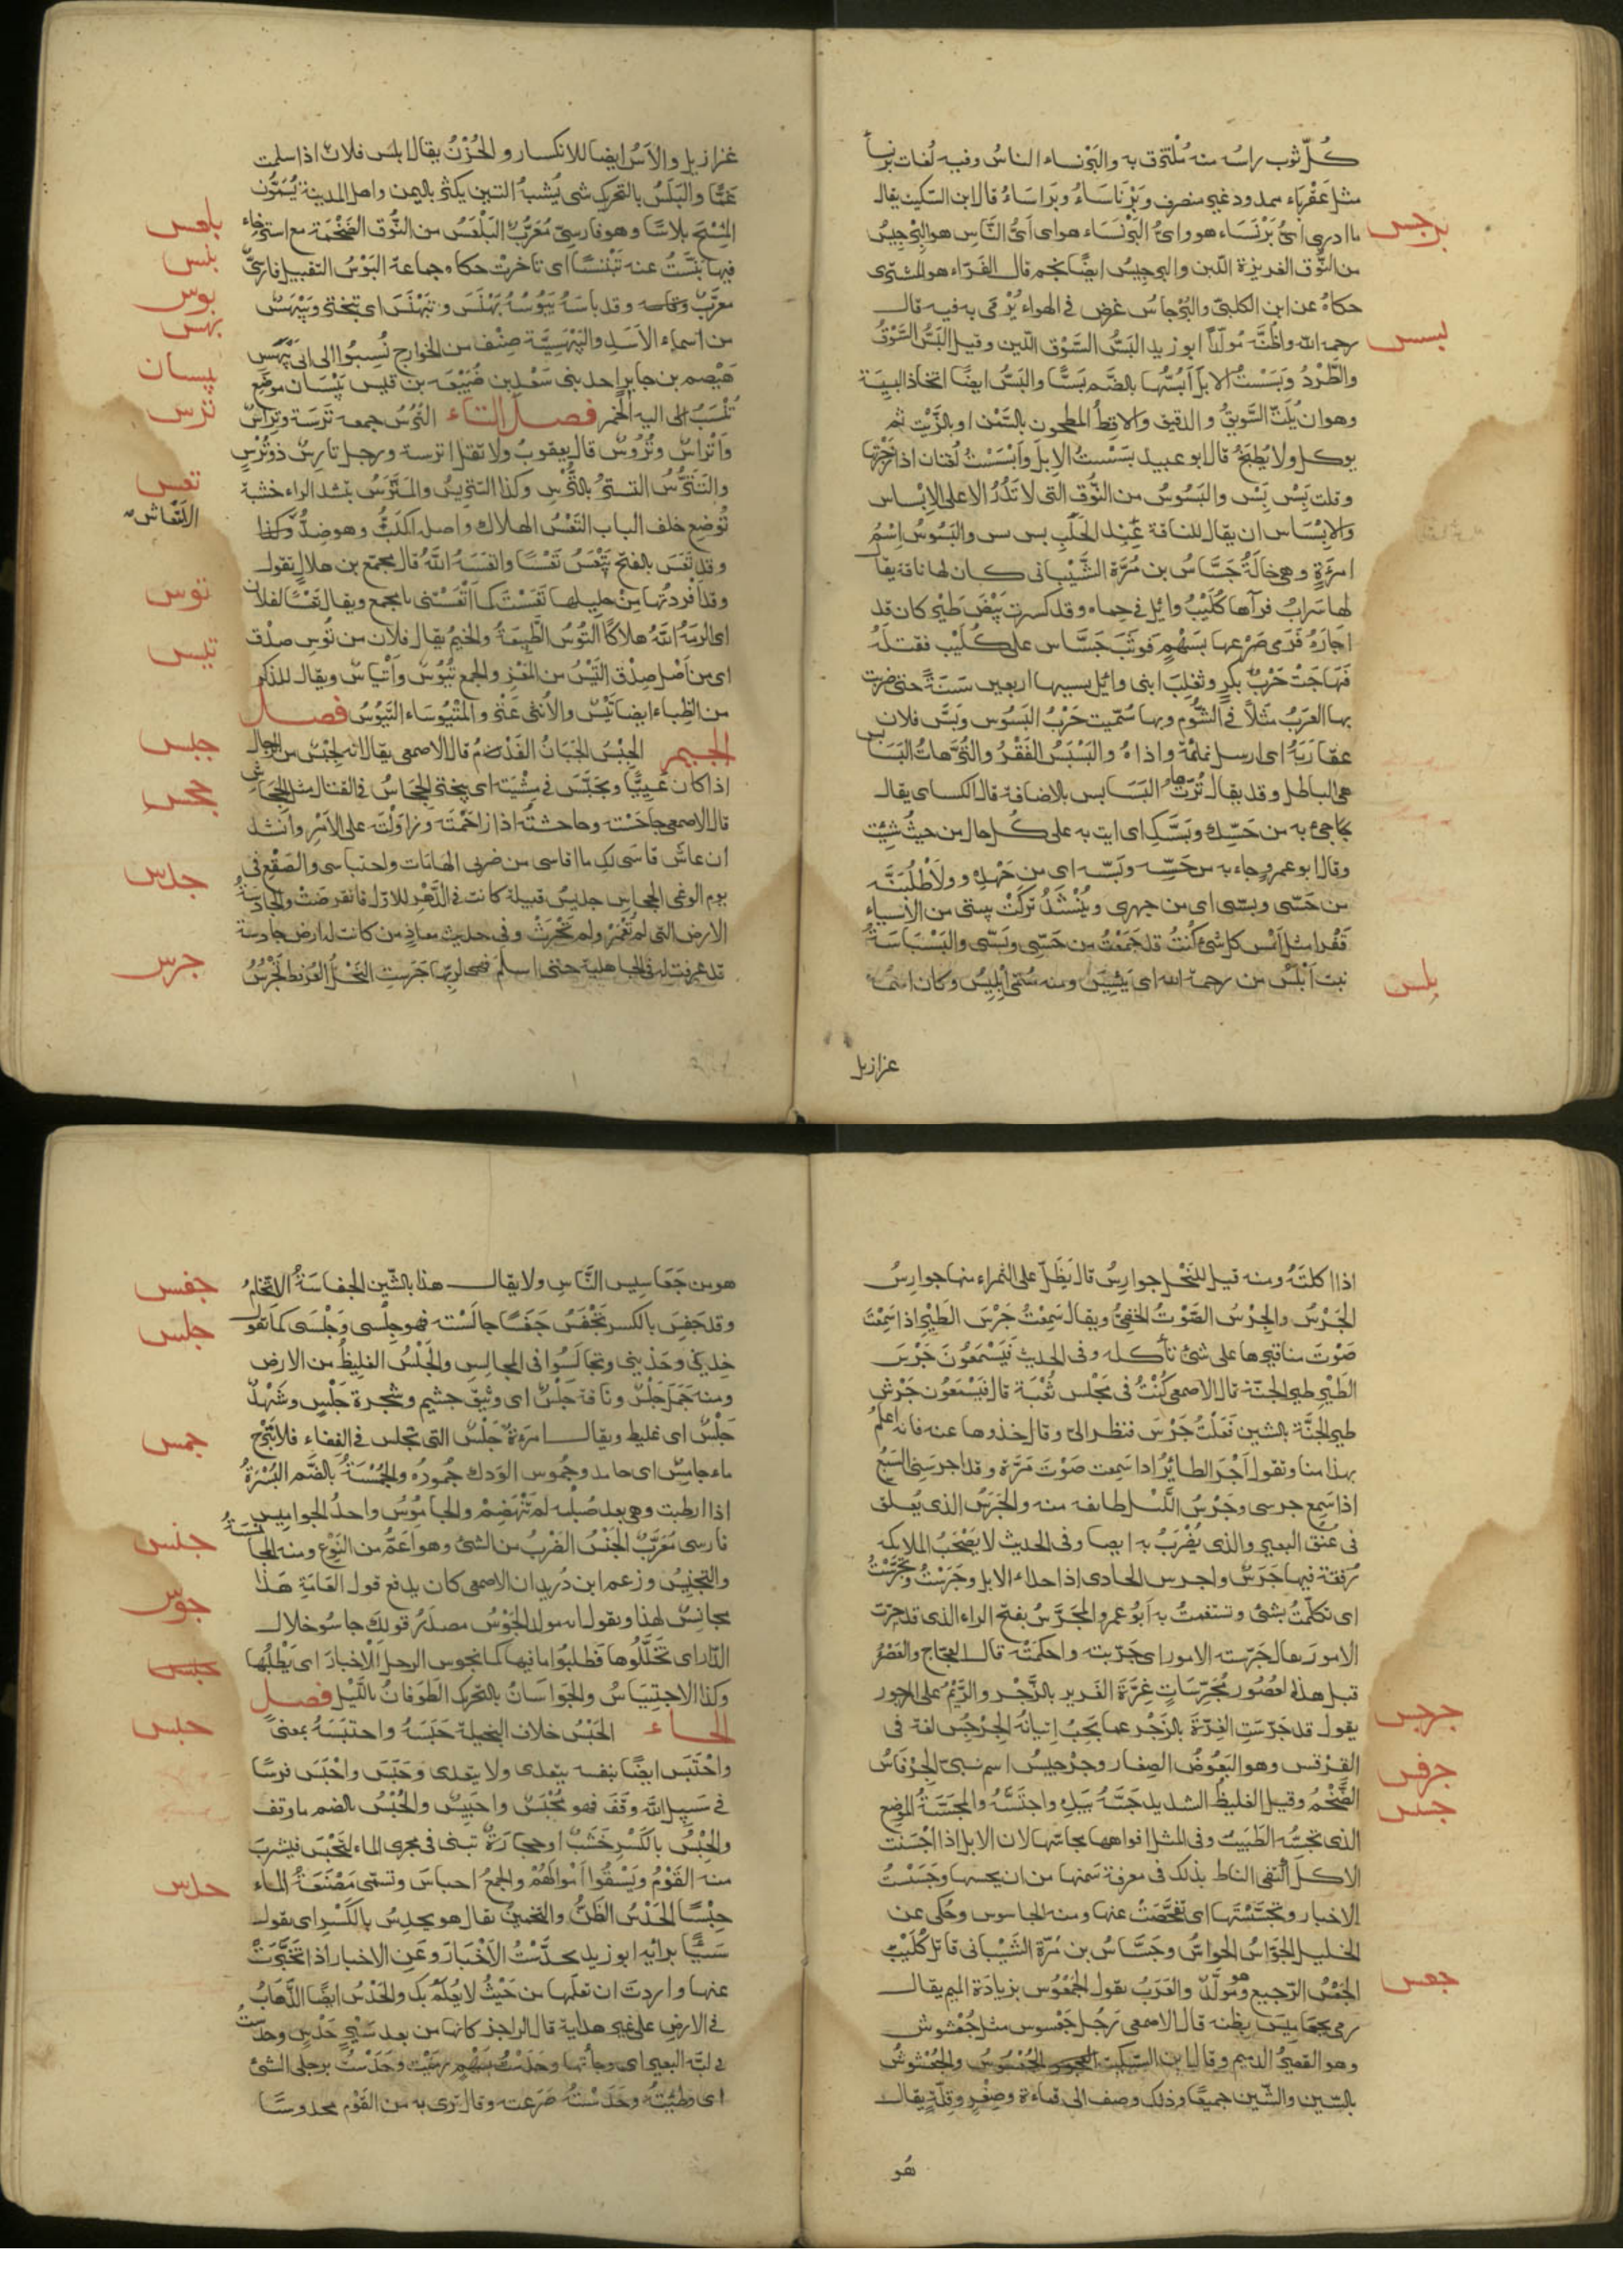 كُلّ ثوب راسُه منه مُلْتزق به والبَرْنساء الناسُ وفيه لُغات برنسا
مثل عَقْرباء ممدود غير منصرف وبَرْنَاسَاءُ وبَرَاسَاءُ قال ابن السكيت يقال
برجس
ما ادرى اىُّ بَرْنَسَاء هو واىُّ البَرْنَسَاء هو اى اىُّ النَّاسِ هو البِرْجِيسُ
من النُّوق الغزيرة اللبن والبرجِيسُ ايضًا نجم قال الفَرّاء هو المشترى
حكاهُ عن ابن الكلبىّ والبُرْجاسُ غرض فى الهواء يُرْمَى به فيه قال
بسس
رحمه الله واظنّه مُولّدًا ابو زيد البَسُّ السَّوْق اللّين وقيل البَسُّ السَّوْقُ
والطَّرْدُ وبَسَسْتُ الابلَ اَبُسُّها بالضَّم بَسًّا والبَسُّ ايضًا اتخاذ البسِيسَة
وهو ان يُلَتّ السَّويقُ والدقيق والاقِطُ المطحون بالسَّمْن او بالزَّيْت ثم
يوكل ولا يُطبَخُ قال ابو عبيد بسَسْتُ الابلَ وأبْسَسْتُ لُغتان اذا زجرْتَها
وقلت بَِسْ بَِسْ والبَسُوسُ من النُّوق التى لا تَدُرُّ الا على الابْساس
والابْسَاس ان يقال للناقة عِنْد الحَلْب بس بس والبَسُوسُ اِسْمُ
امرَءةٍ وهى خالَةُ جَسَّاسُ بن مُرَّة الشَّيْبانى كان لها ناقة يقا
لها سَرَابُ فرآها كُلَيْبُ وائل فى حِماه وقد كسرت بَيْضَ طَيْرٍ كان قد
اجارَهُ فَرَمى ضَرْعها بسَهْمٍ فَوَثَبَ جَسَّاس على كُلَيْبٍ فقتلَهُ
فَهَاجَتْ حَرْبُ بكرٍ وتغلِبَ ابنى وائل بسببها اربعين سَنَةً حتى ضربت
بها العَرَبُ مَثَلًا فى الشُّوْم وبها سُمّيت حَرْبُ البَسُوس وبَسَّ فلان
عقارَبَهُ اى ارسل نمائمَه واذاهُ والبَسْبَسُ القَفْرُ والتُّرَّهاتُ البَسَابس
هى الباطل وقد يقال تُرّهاتُ البَسَابس بالاضافة قال الكساى يقال
جاجئ به من حَسِّكِ وبَسَّكِ اى ايت به على كُلّ حال من حيثُ شِئتَ
وقال ابو عمرو جاء به من حَسِّه وبَسّه اى من جَهْدِهِ وولاطْلُبَنَّه
من حَسّى وبسّى اى من جهدى ويُنْشَدُ تركَتْ بيتى من الاشياء
قَفْرا مثل اَمْس كل شئ كُنْتُ قد جَمَعْتُ من حَسِّى وبَسّى والبَسْبَاسَةُ
بلس
نبت اَبْلَسَ من رحمة الله اى يَئِسَ ومنه سُمّى اِبْلِيسُ وكان اسمُه
عزازيل
عزازيل والاِبْلاسُ ايضا للانكسار والحُزْنُ يقال ابلس فلان اذا سكت
غمًّا والبَلَسُ بالتحرك شى يُشبهُ التين يكثر باليمن واهل المدينة يُسَمُّون
بلعس
المِسْحَ بَلاسًا وهو فارسىّ مُعَرَّبٌ البَلْعَسُ من النُّوق الضَّخْمَة مع استرخاء
بنس
فيها بَنَّسْتُ عنه تَبْنِيسًا اى تاخّرت حكاه جماعة البَوْسُ التقبيل فارسىّ
بوس
معرّبٌ وقد باسَهُ يَبُوسُهُ بَهْنَسَ وتَبَهْنَسَ اى تبختر وبَيْهَسٌ
بهس
من اسماء الاَسَدِ والبَيْهَسِيَّة صِنْف من الخوارج نُسِبُوا الى ابى بَيْهَس
بيسان
هَيْصم بن جابر احد بنى سَعْد بن ضُبَيْعَة بن قيس بَيْسَان موضع
ترس
تُنْسَبُ الى اليه الخمر فصل التاء التُّرسُ جمعه تِرَسَة وتِراسٌ
وَاَتْراسٌ وتُرُوسٌ قال يعقوب ولا تقل اترسة ورجل تارِسٌ ذو تُرْسٍ
تعس
والتَّتَرُّسُ التستّر بالتُّرس وكذا التتريس والمَتَّرَسُ بتشد الراء خشبة
الانعاش
تُوضع خلف الباب التَّعْسُ الهلاك واصله الكَبُّ وهو ضِدُّ
وقد تعَسَ بالفتح يَتْعَسُ تَعْسًا واتعَسَهُ اللهُ قال مجمّع بن هلال تقول
توس
وقد أفردتُها من حليلها تَعَسْتَ كما اَتْعَسْتَنى يا مجمع ويقال تعْسًا لفلان
اى الزمَهُ اللهُ هلاكًا التُّوسُ الطَّبِيعَةُ والخِيمُ يقال فلان من تُوسِ صدْق
تيس
اى من اَصْل صِدْق التَّيْسُ من المَعْزِ والجمع تُيُوْسٌ واَتْيَاسٌ ويقال للذكر
من الظباء ايضا تَيْسٌ والأنثى عَنْز والمتْيُوسَاء التُّيُوْسُ فصل
جبس
الجيم الجِبْسُ الجَبَانُ الفَدْمُ قال الاصمعى يقال انه لجِبْسٌ من الرجال
جحس
اذا كان عَيِيًّا وتجَبَّسَ فى مِشْيَتِه اى تبختر الجِحَاسُ فى القتال مثل الجِحَاش
قال الاصمعى جاحَسْته وجاحشته اذا زاحَمْتَه وزاوَلْتَه على الاَمْرِ وأنشد
ان عاش قاسَى لك ما اقاسى من ضربى الهَامَات واحتباسى والصَقْعِ فى
جدس
يوم الوغى الجحاس جديسُ قبيلة كانت فى الدَّهْرِ الاوّل فانقرضَتْ والجادِسَةُ
الارض التى لم تُعْمَر ولم تُحْرَثْ وفى حديث معاذٍ من كانت له ارض جادسة
جرس
قد عرفت له فى الجاهلية حتى اسلم فهى لربّها جَرَسَتِ النَّحْلُ العُرْفط تَجْرُسُ
اذا اكلتَه ومنه قيل للنَحْلِ جوارِسُ قال يَظَلّ على الثمراء منها جوارِسُ
الجَرْسُ والجِرْسُ الصَّوْتُ الخفِىُّ ويقال سَمِعْتُ جَرْسَ الطَيْرِ اذا سَمِعْتَ
صَوْتَ مناقيرها على شئ تأكله وفى الحديث فَيَسْمَعُونَ جَرْسَ
الطَيْرِ طير الجنّة قال الاصمعى كُنْتُ فى مَجْلس شُعْبَة قال فَيَسْمَعُون جَرْشَ
طير الجنَّة بالشين فَقُلْتُ جَرْسَ فنظر الىّ وقال خذوها عنه فانه اعلم
بهذا منا وتقول اَجْرَسَ الطائرُ اذا سَمِعت صَوْتَ مَرّهِ وقد اجرسَنى السَّبُعُ
اذا سَمِع جرسى وجَرْسٌ من اللَّيْل طائفه منه والجَرَسُ الذى يُعلق
فى عنُق البعير والذى يُضْرَبُ به ايضا وفى الحديث لا تصْحَبُ الملائكه
رُفقة فيها جَرَسٌ واجرس الحادى اذا حداء الابل وجَرَسْتُ وتَجَرَّسْتُ
اى تكلّمتُ بشئ وتنَغّمتُ به اَبُو عمرو المُجَرَّسُ بفتح الراء الذى قد جرّب
الامورَ يقال جَرّسته الامور اى جَرّبته واحكمَتْه قال العجّاج والعَصْرُ
قبل هذه العُصُورِ مُجَرَّسَاتٍ غِرَّةَ الغَرير بالزَّجْر والرَّيْمِ على المزجور
جرجس
يقول قد جَرّسَتِ الغِرَّةَ بالزَجْر عما يَجِبُ اِتيانُه الجِرْجِسُ لغة فى
جرفس
القِرْقس وهو البَعُوضُ الصِغار وجِرْجِيسُ اسم نبىّ الجِرْفَاسُ
جسس
الضَّخْمُ وقيل الغليظُ الشديد جَسَّهُ بيَدِهِ واجتَسَّهُ والمجَسَّةُ الموضِع
الذى تجسُّه الطَبيبُ وفى المثل افواهها مجاسّها لان الابل اذا اَحْسَنت
الاكلَ اكتفى الناظر بذلك فى معرفة سَمنها من ان يجسها وجَسَسْتُ
الاخبار وتجسَّسْتَها اى تفحَّصْتَ عنها ومنه الجاسوس وحُكى عن
الخليل الجَوَاسُّ الحواسُّ وجَسَّاسُ بن مُرّة الشَّيْبانى قاتل كُلَيْبٍ
جعس
الجَعْسُ الرّجيع وهو مُولّدٌ والعَرَبُ تقول الجَعْمُوْس بزيادة الميم يقال
رمى بجعَامِيسَ بطنه قال الاصمعى رَجُل جُعْسوس مثل جُعْشوش
وهو القصيرُ الدميم وقال ابن السّكيت الجُعْسُوسُ والجُعْشُوشُ
بالسّين والشّين جميعًا وذلك وصف الى قماءة وصِغَرٍ وقِلّةٍ يقال
هُو
جفس
هو من جَعَاسيس النَّاسِ ولا يقال هذا بالشّين الجفاسَةُ الاتخامُ
جلس
وقد جَفِسَ بالكسر تجْفَسُ جَفَسًا جالَسْته فهو جِلْسى وجَلِيسى كما تقول
خِدْنى وخَدْينى وتجالَسُوا فى المجالسِ والجَلْسُ الغليظُ من الارض
ومنه جَمَل جَلْسٌ وناقة جَلْسٌ اى وثيق جسيم وشجرة جَلْسٍ وشَهْدٌ
جمس
جَلْسٌ اى غليط ويقال امرءةٌ جَلْسٌ التى تجلس فى الفِناء فلا تَبْرَح
ماء جامِسٌ اى جامد وجُمُوس الوَدك جُمُودُه والجُمْسَةُ بالضَّم البُسْرَةُ
اذا ارطبت وهى بعد صُلْبه لم تَنْهَضِمْ والجامُوْسُ واحدُ الجوامِيس
جنس
فارسى مُعَرّبٌ الجِنْسُ الضَربُ من الشئ وهو اَعَمُّ من النَوْع ومنه المجانسَةُ
والتجنيس وزعم ابن دُريد ان الاصمعى كان يدفع قول العَامّةِ هَذَا
جوس
مجانِسٌ لهذا ويقول انه مولد الجَوْسُ مصدَرُ قولِكَ جاسُو خلال
الدّار اى تَخَلَّلُوها فَطلبُوا ما فيها كما يجوس الرجل الاَخبارَ اى يَطْلُبُها
حبس
وكذا الاجتِيَاسُ والجَوَاسَانُ بالتحرك الطَوَفانُ بالَّليْل فصل
حبس
الحاء الحَبْسُ خلاف التخيلة حَبَسَهُ واحتبَسَهُ بمعنى
واحْتَبَس ايضًا بنفسه يتعدى ولا يتعدى وحَبَسَ واحْبَسَ فرسًا
فى سَبيل اللّه وقَفَ فهو مُحْبَسٌ واحَبِيسٌ والحُبْسُ بالضم ما وقف
والحِبْسُ بالكَسْرِ خَشَبٌ او حِجارَةٌ تبنى فى مجرى الماء لتحْبِسَ فيشربَ
حدس
منه القَوْمُ ويَسْقُوا اَمْوالَهُمْ والجمعُ احباسَ وتسمّى مَصْنَعَةُ الماء
حِبْسًا الحَدْسُ الظَنُّ والتخمينُ يقال هو يحدِسُ بالكَسْرِ اى يقول
شَيْئًا برايه ابو زيد تحدَّسْتُ الاَخْبَارَ وعَنِ الاخبار اذا تخَبَّرْتَ
عنها واردتَ ان تعلَمها من حَيْثُ لا يُعْلَمُ بك والحَدْسُ ايضًا الذَّهَابُ
فى الارضِ على غير هداية قال الراجز كانها من بعد سَيْرٍ حَدْسٍ وحدسْتُ
فى لَبّه البعير اى وجأتها وحَدَسْتُ بسَهْمٍ رمَيْت وحَدَسْتُ برجلى الشئ
اى وطِئْتُهُ وحَدَسْتُهُ صَرَعته وقال ترى به من القَوْم محدوسًا